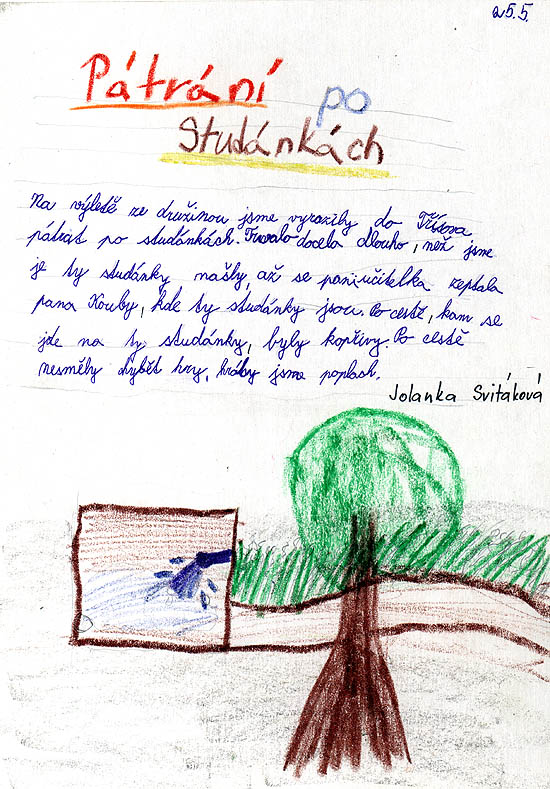 25.5.
Pátrání po
Studánkách
Na výletě ze družinou jsme vyrazily do Třísova
pátrat po studánkách. Trvalo docela dlouho, než jsme
je ty studánky našly, až se paní učitelka zeptala
pana Kouby, kde ty studánky jsou. Po cestě, kam se
jde na ty studánky, byly kopřivy. Po cestě
nesměly chybět hry, hrály jsme poplach.
Jolanka Svitáková